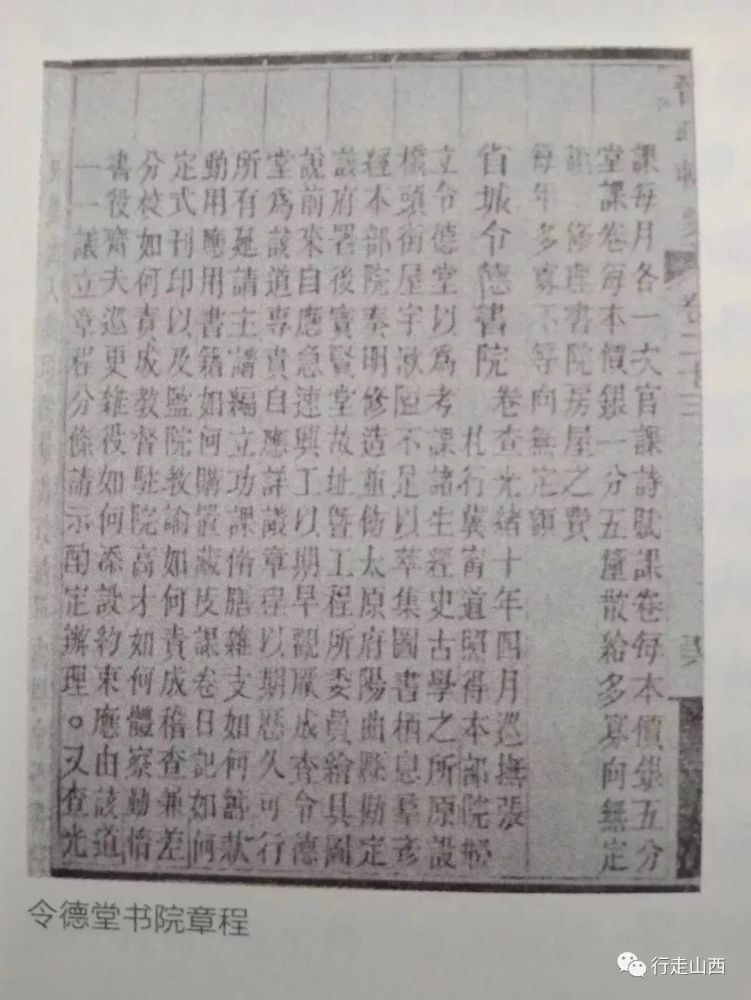 卷二十三
課每月各一次官課詩賦課卷每本價銀五分
堂課卷每本價銀一分五釐散給多寡向無定
額 修理書院房屋之費
每年多寡不等向無定額
省城令德書院 卷查光緒十年四月巡撫張
札行冀甯道照得本部院擬
立令德堂以爲考課諸生經史古學之所原設
橋頭街屋宇湫隘不足以萃集圖書栖息羣彥
經本部院奏明修造並飭太原府陽曲縣勘定
該府署後寶賢堂故址暨工程所委員繪具圖
說前來自應急速興工以期早觀厥成查令德
堂爲該道專責自應詳議章程以期歷久可行
所有延請主講編立功課脩膳雜支如何籌款
動用應用書籍如何購置藏庋課卷日記如何
定式刊印以及監院教諭如何責成稽查兼差
分校如何責成教督駐院高才如何體察勤惰
書役齋夫巡更雜役如何添設約束應由該道
一一議立章程分條請示酌定辦理。又查光
令德堂书院章程
行走山西